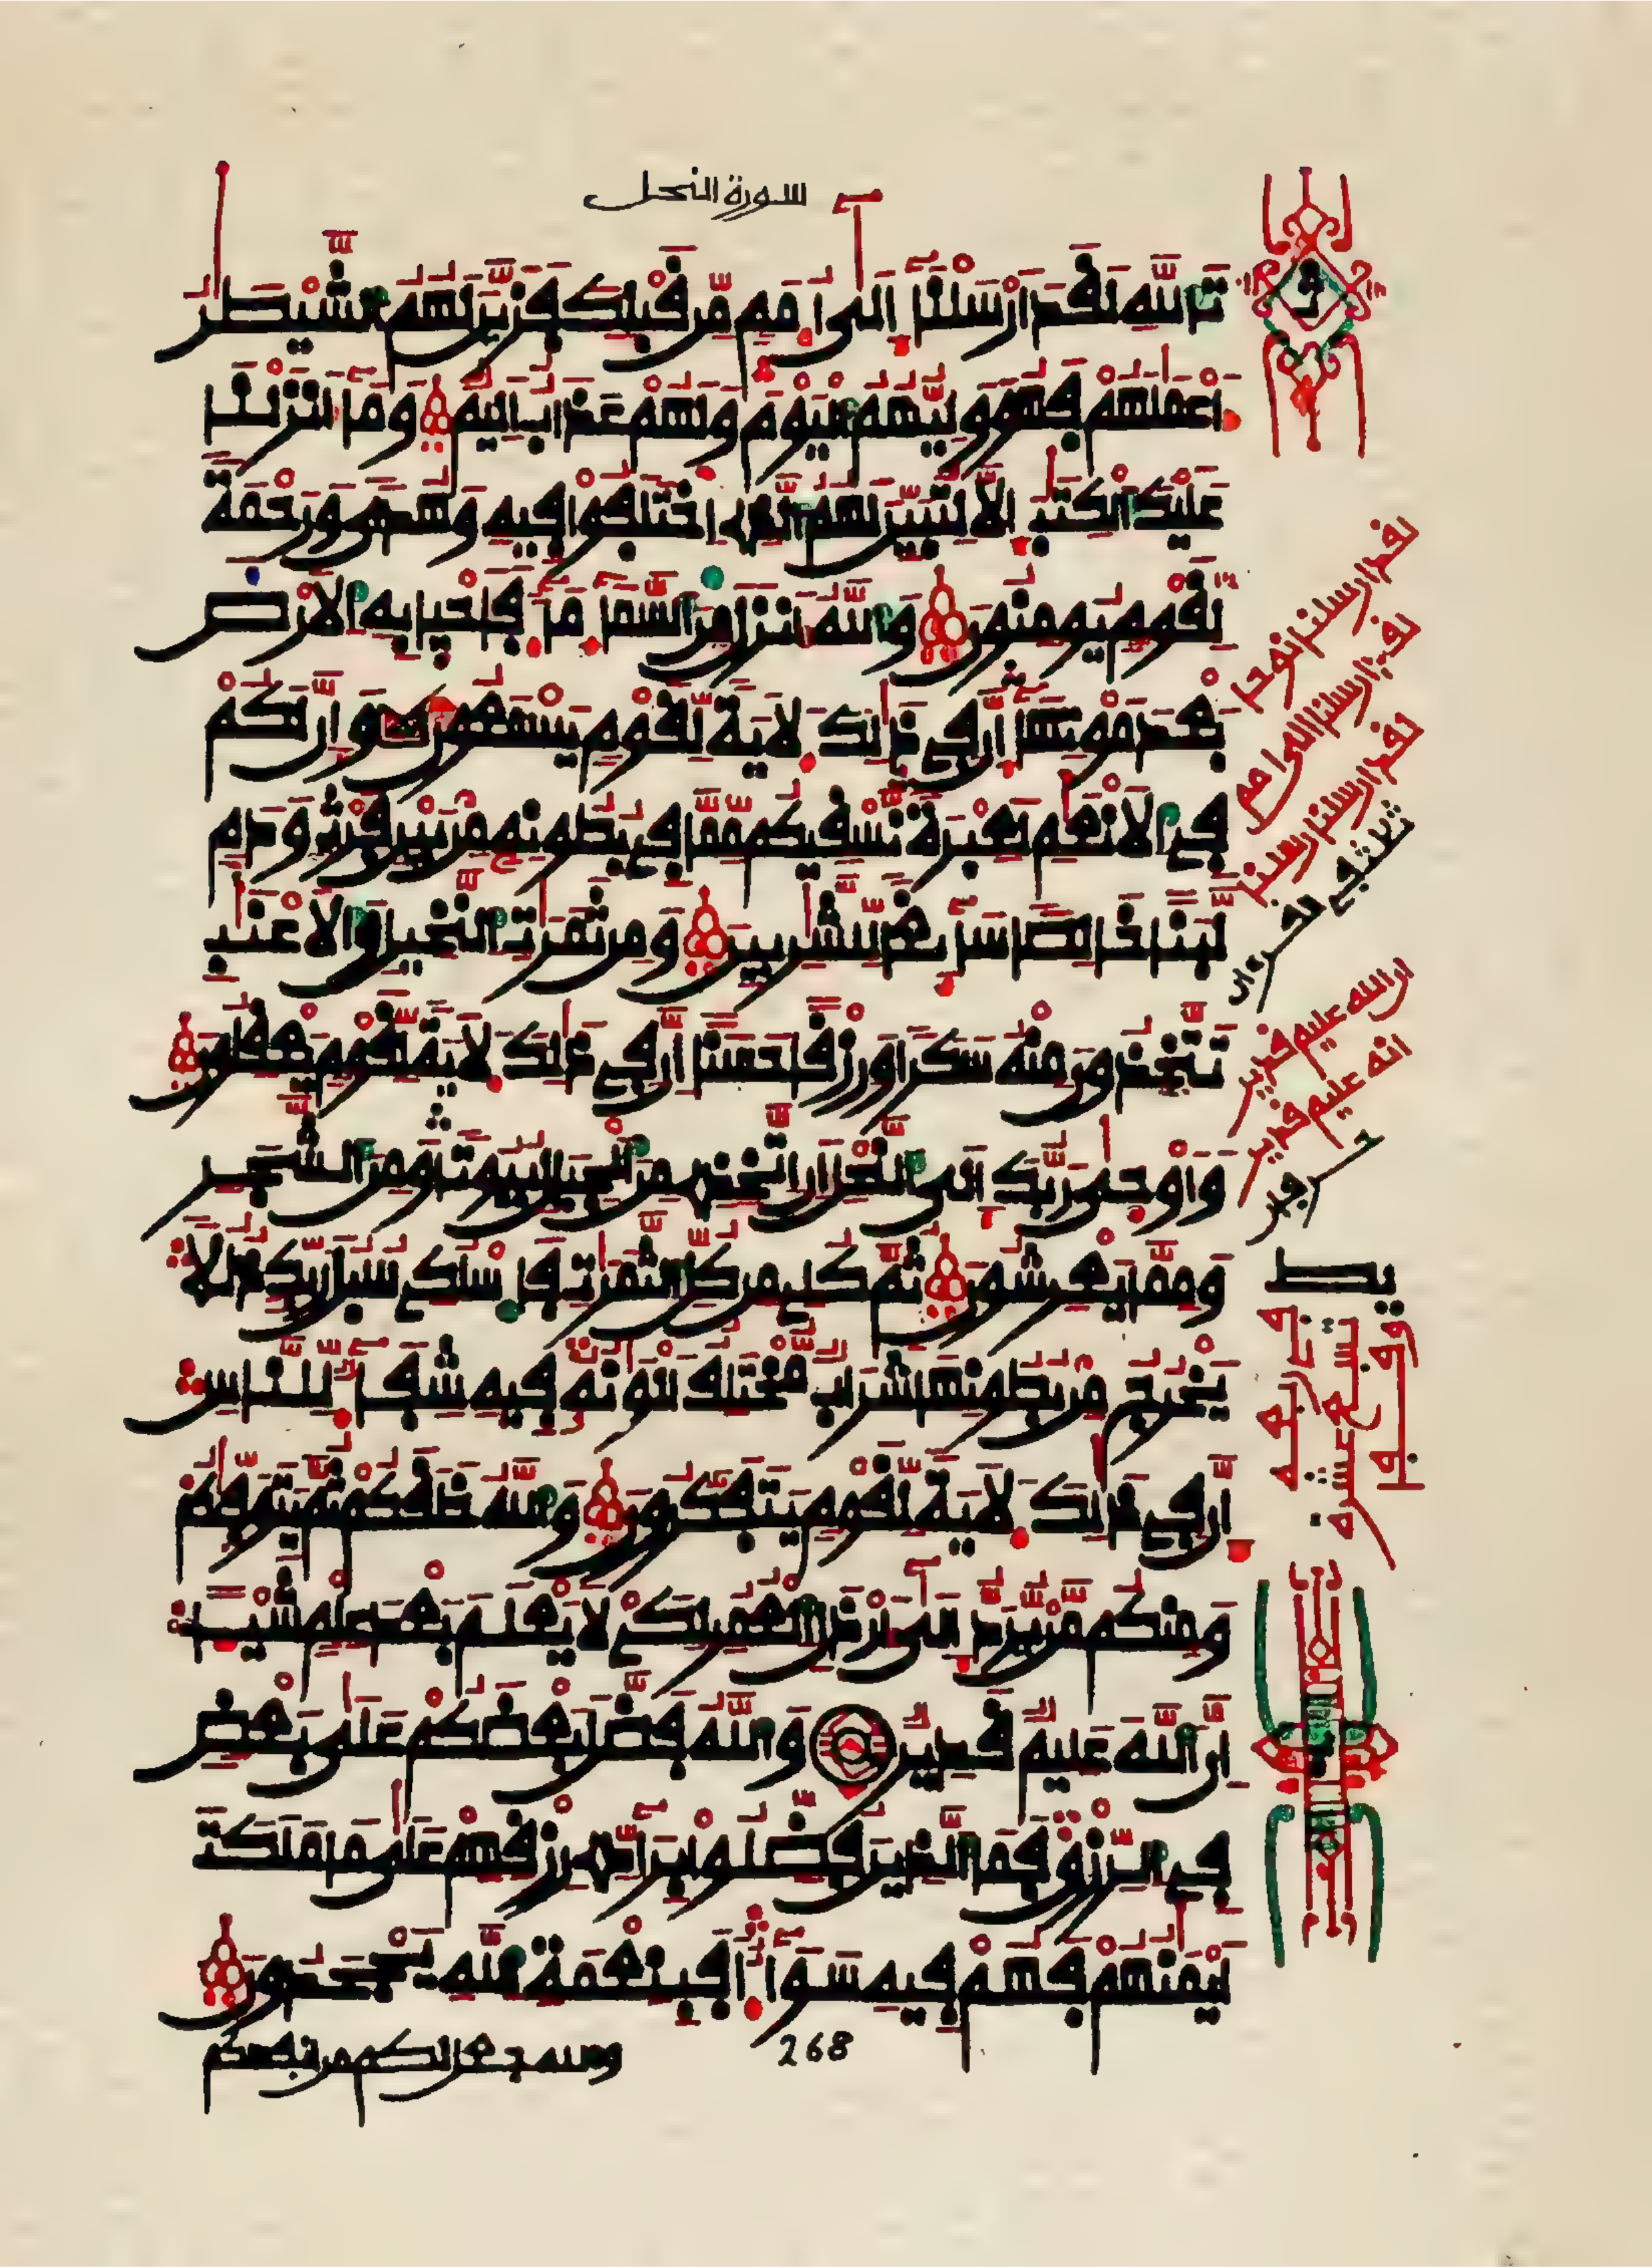 سورة النحل
تَاللَّهِ لَقَدَ اَرْسَلْنَا إِلَىٰ أُمَمٍ مِّن قَبْلِكَ فَزَيَّنَ لَهُمُ الشَّيْطَٰنُ
أَعْمَٰلَهُمْ فَهُوَ وَلِيُّهُمُ الْيَوْمَ وَلَهُمْ عَذَابٌ اَلِيمٌ وَمَا أَنزَلْنَا
عَلَيْكَ الْكِتَٰبَ إِلَّا لِتُبَيِّنَ لَهُمُ الَّذِي اِخْتَلَفُوا فِيهِ وَهُدًى وَرَحْمَةً
لِّقَوْمٍ يُومِنُونَ وَاللَّهُ أَنزَلَ مِنَ السَّمَاءِ مَاءً فَأَحْيَا بِهِ الْأَرْضَ
بَعْدَ مَوْتِهَا إِنَّ فِي ذَٰلِكَ لَآيَةً لِّقَوْمٍ يَسْمَعُونَ وَإِنَّ لَكُمْ
فِي الْأَنْعَٰمِ لَعِبْرَةً نَّسْقِيكُم مِّمَّا فِي بُطُونِهِ مِن بَيْنِ فَرْثٍ وَدَمٍ
لَّبَنًا خَالِصًا سَائِغًا لِّلشَّٰرِبِينَ وَمِن ثَمَرَٰتِ النَّخِيلِ وَالْأَعْنَٰبِ
تَتَّخِذُونَ مِنْهُ سَكَرًا وَرِزْقًا حَسَنًا إِنَّ فِي ذَٰلِكَ لَآيَةً لِّقَوْمٍ يَعْقِلُونَ
وَأَوْحَىٰ رَبُّكَ إِلَى النَّحْلِ أَنِ اتَّخِذِي مِنَ الْجِبَالِ بُيُوتًا وَمِنَ الشَّجَرِ
وَمِمَّا يَعْرِشُونَ ثُمَّ كُلِي مِن كُلِّ الثَّمَرَٰتِ فَاسْلُكِي سُبُلَ رَبِّكِ ذُلُلًا
يَخْرُجُ مِن بُطُونِهَا شَرَابٌ مُّخْتَلِفٌ أَلْوَٰنُهُ فِيهِ شِفَاءٌ لِّلنَّاسِ
إِنَّ فِي ذَٰلِكَ لَآيَةً لِّقَوْمٍ يَتَفَكَّرُونَ وَاللَّهُ خَلَقَكُمْ ثُمَّ يَتَوَفَّىٰكُمْ
وَمِنكُم مَّن يُرَدُّ إِلَىٰ أَرْذَلِ الْعُمُرِ لِكَيْ لَا يَعْلَمَ بَعْدَ عِلْمٍ شَيْئًا
إِنَّ اللَّهَ عَلِيمٌ قَدِيرٌ وَاللَّهُ فَضَّلَ بَعْضَكُمْ عَلَىٰ بَعْضٍ
فِي الرِّزْقِ فَمَا الَّذِينَ فُضِّلُوا بِرَادِّي رِزْقِهِمْ عَلَىٰ مَا مَلَكَتَ
أَيْمَٰنُهُمْ فَهُمْ فِيهِ سَوَاءٌ اَفَبِنِعْمَةِ اللَّهِ يَجْحَدُونَ
والله جعل لكم من انفسكم
268
لقد ارسلنا نوحا
لقد ارسلنا الى امم
لقد ارسلنا رسلنا
ان الله عليم قدير
انه عليم قدير